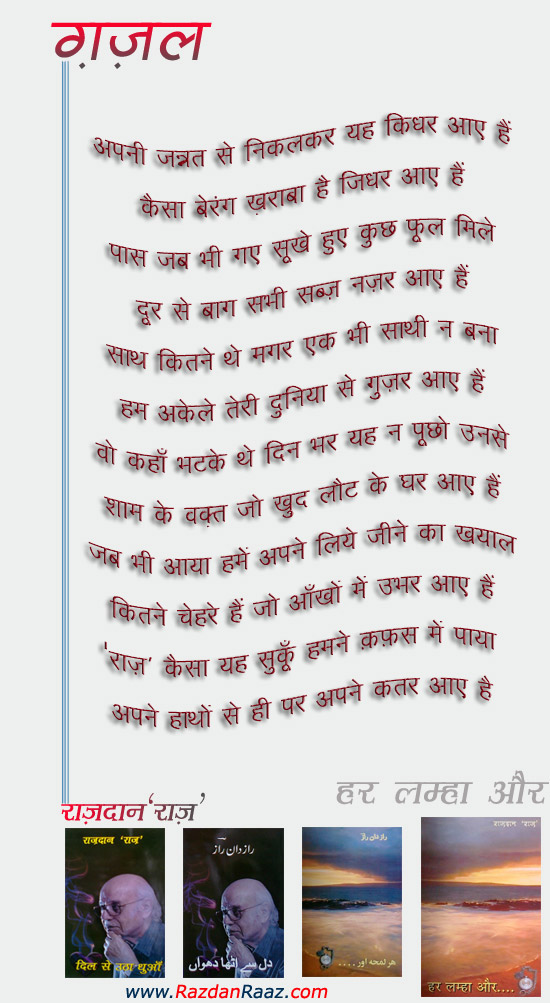 ग़ज़ल
अपनी जन्नत से निकलकर यह किधर आए हैं
कैसा बेरंग ख़राबा है जिधर आए हैं
पास जब भी गए सूखे हुए कुछ फूल मिले
दूर से बाग सभी सब्ज़ नज़र आए हैं
साथ कितने थे मगर एक भी साथी न बना
हम अकेले तेरी दुनिया से गुज़र आए हैं
वो कहाँ भटके थे दिन भर यह न पूछो उनसे
शाम के वक़्त जो खुद लौट के घर आए हैं
जब भी आया हमें अपने लिये जीने का खयाल
कितने चेहरे हैं जो आँखों में उभर आए हैं
'राज़' कैसा यह सुकूँ हमने क़फ़स में पाया
अपने हाथों से ही पर अपने कतर आए है
हर लम्हा और
राज़दान 'राज़'
राज़दान 'राज़'
दिल से उठा धुआँ
راز دان راز
دل سے اٹھا دھواں
راز دان راز
ہر لمحہ اور....
राज़दान 'राज़'
हर लम्हा और....
www.RazdanRaaz.com